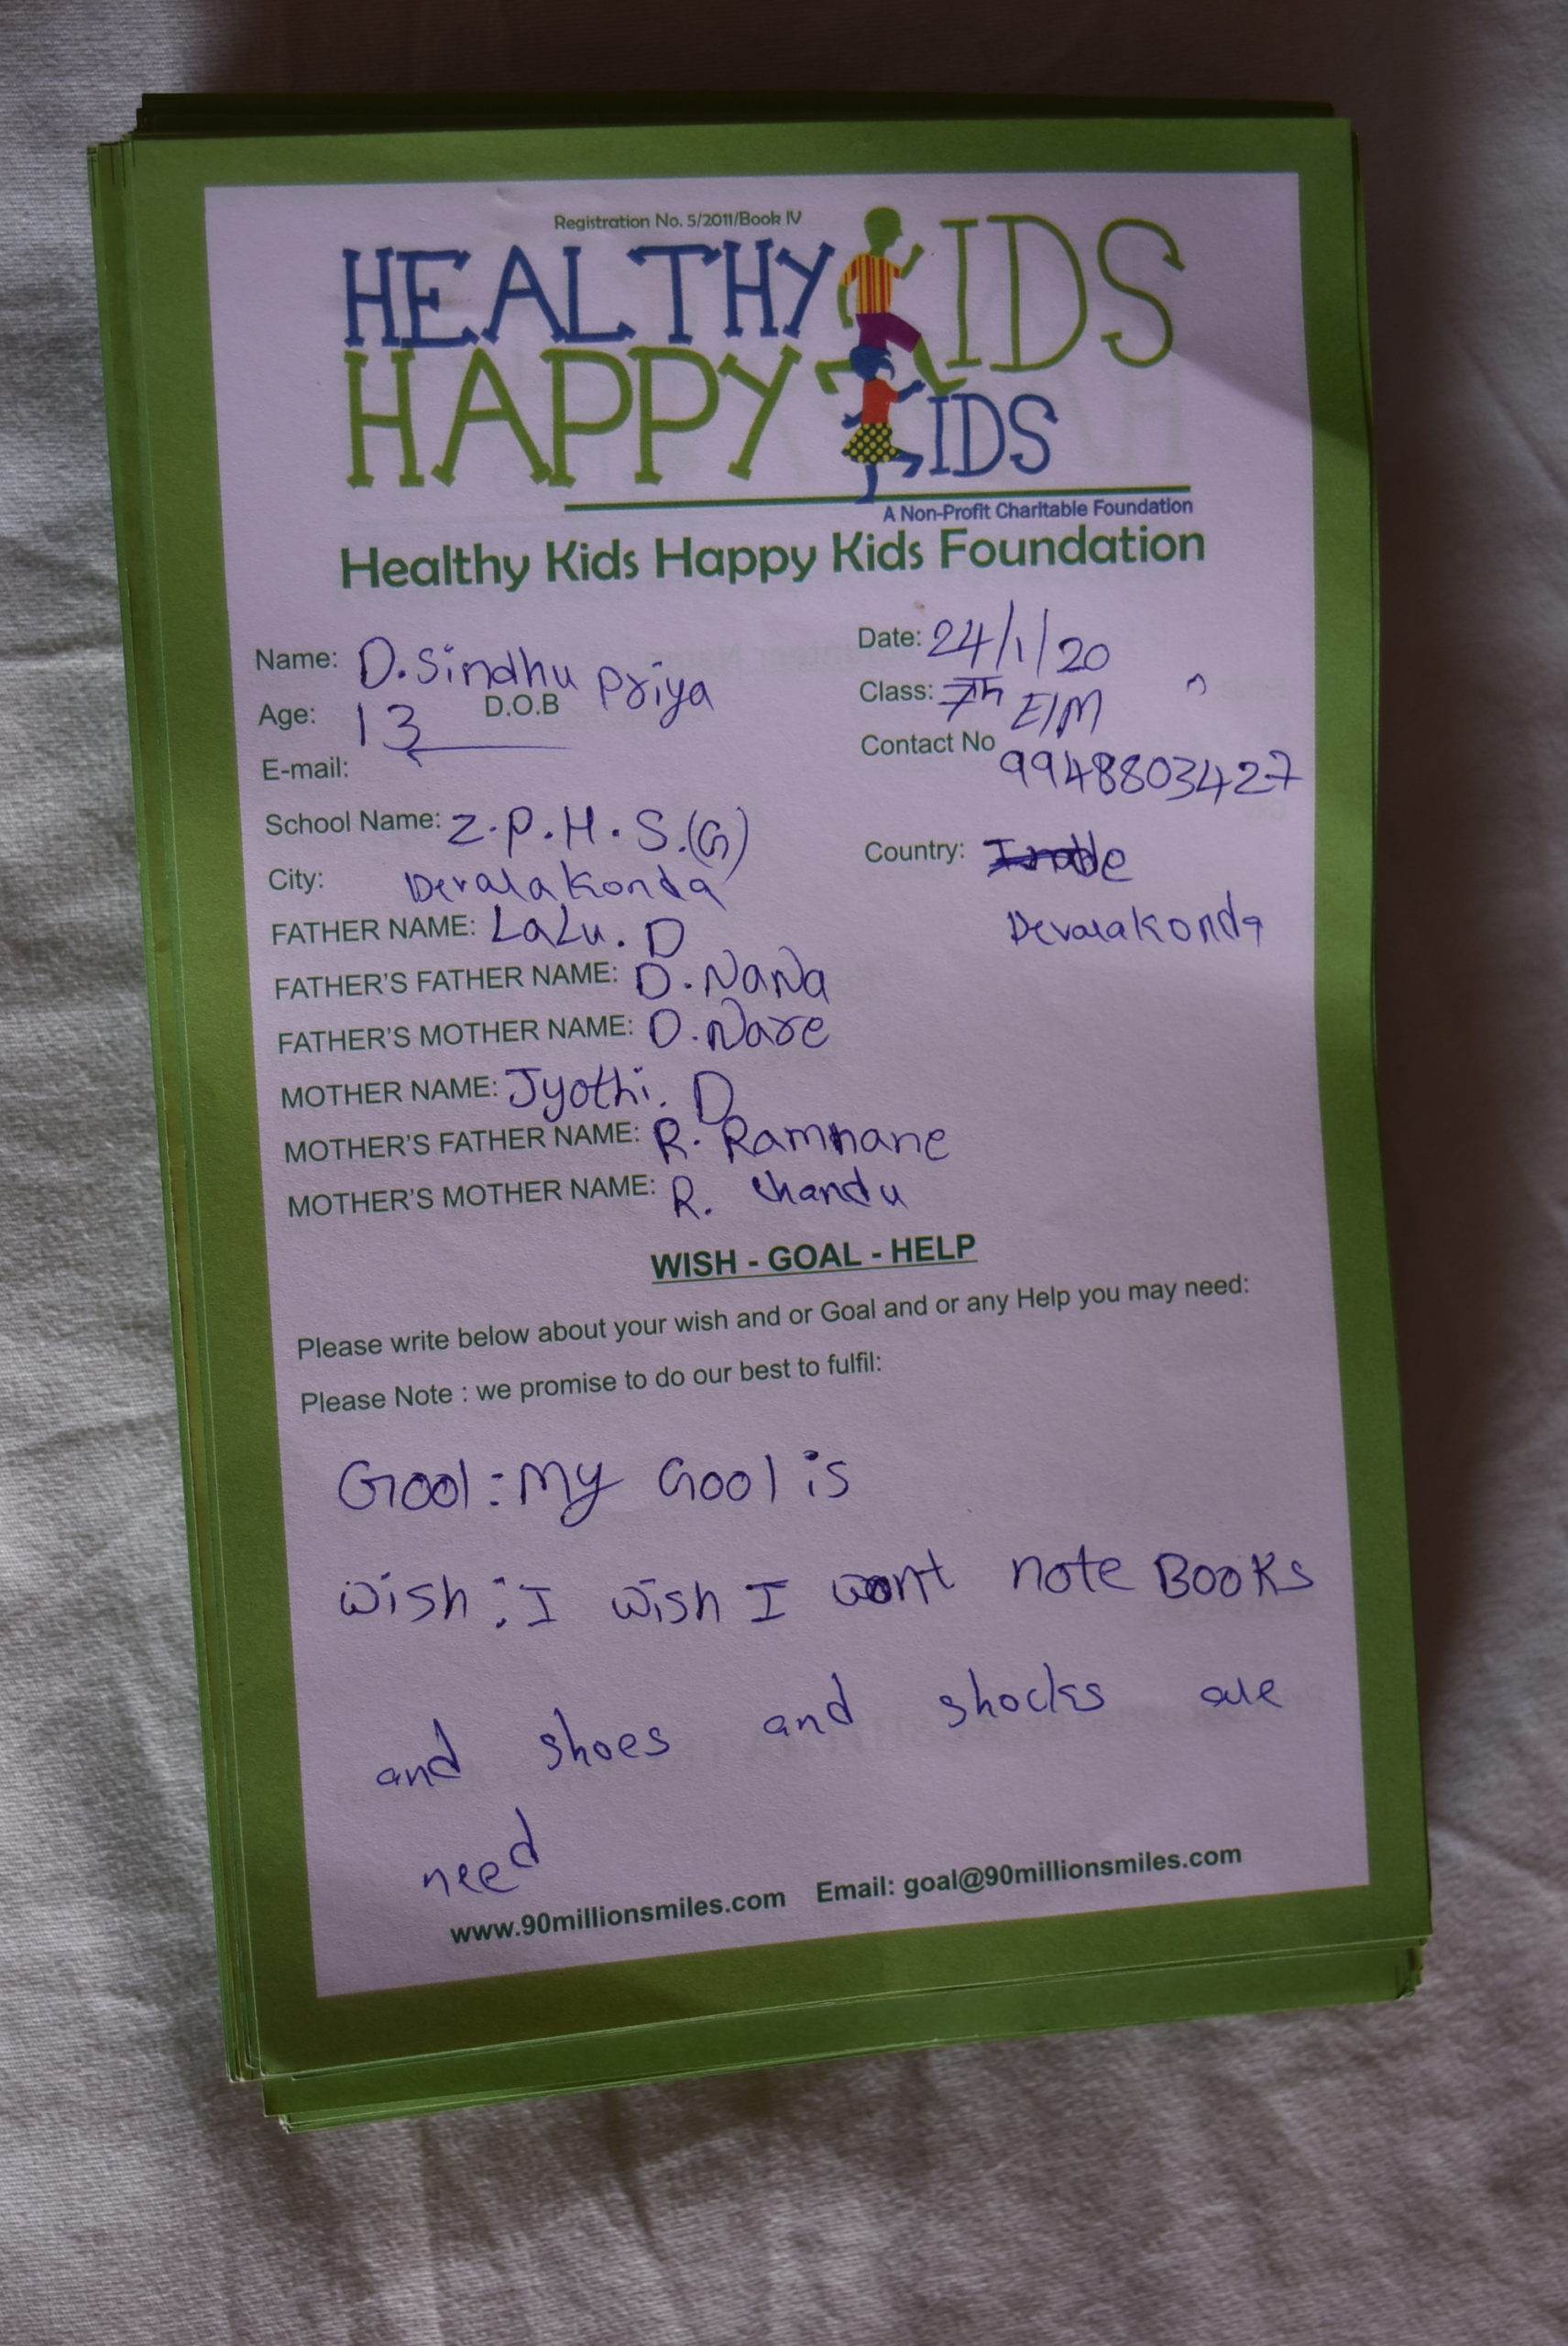 Registration No. 5/2011/Book IV
HEALTHY KIDS
HAPPY KIDS
A Non-Profit Charitable Foundation
Healthy Kids Happy Kids Foundation
Name: D. Sindhu Priya
Date: 24/1/20
Age: 13
D.O.B
Class: 7th E/M
E-mail:
Contact No 9948803427
School Name: Z.P.H.S.(G)
City: Devarakonda
Country:
Devarakonda
FATHER NAME: LaLu. D
FATHER'S FATHER NAME: D. NaNa
FATHER'S MOTHER NAME: D. Nare
MOTHER NAME: Jyothi. D
MOTHER'S FATHER NAME: R. Ramnane
MOTHER'S MOTHER NAME: R. Chandu
WISH - GOAL - HELP
Please write below about your wish and or Goal and or any Help you may need:
Please Note : we promise to do our best to fulfil:
Gool : My Gool is
Wish : I wish I wont note Books
and shoes and shocks are
need
www.90millionsmiles.com Email: goal@90millionsmiles.com